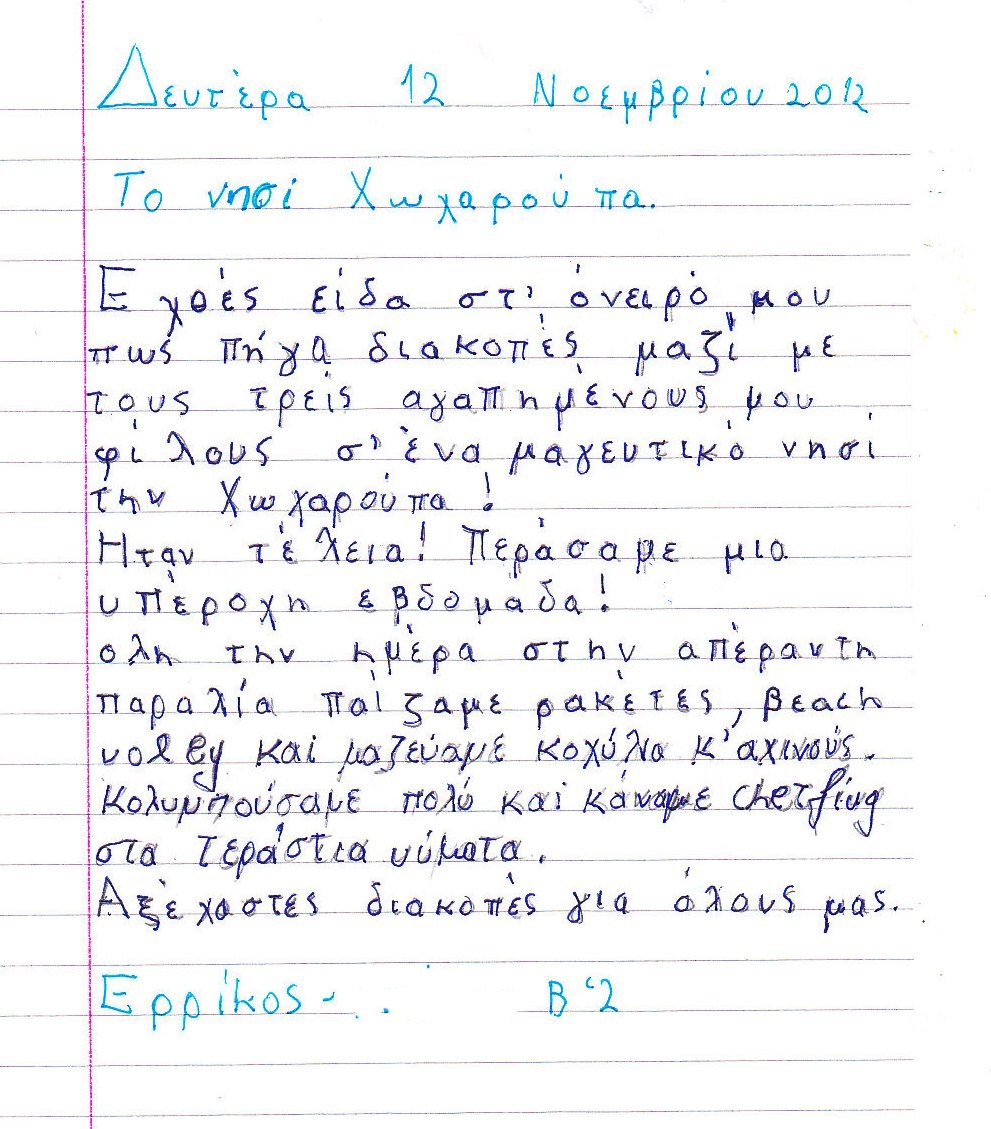 Δευτέρα 12 Νοεμβρίου 2012
Το νησί Χωχαρούπα.
Εχθές είδα στ' όνειρό μου
πως πήγα διακοπές μαζί με
τους τρείς αγαπημένους μου
φίλους σ' ένα μαγευτικό νησί
την Χωχαρούπα!
Ηταν τέλεια! Περάσαμε μια
υπέροχη εβδομάδα!
ολη την ημέρα στην απέραντη
παραλία παίζαμε ρακέτες, βeach
voley και μαζεύαμε κοχύλια κ' αχινούς.
Κολυμπούσαμε πολύ και κάναμε
στα τεράστια κύματα.
Αξέχαστες διακοπές για όλους μας.
Ερρίκος Β'2